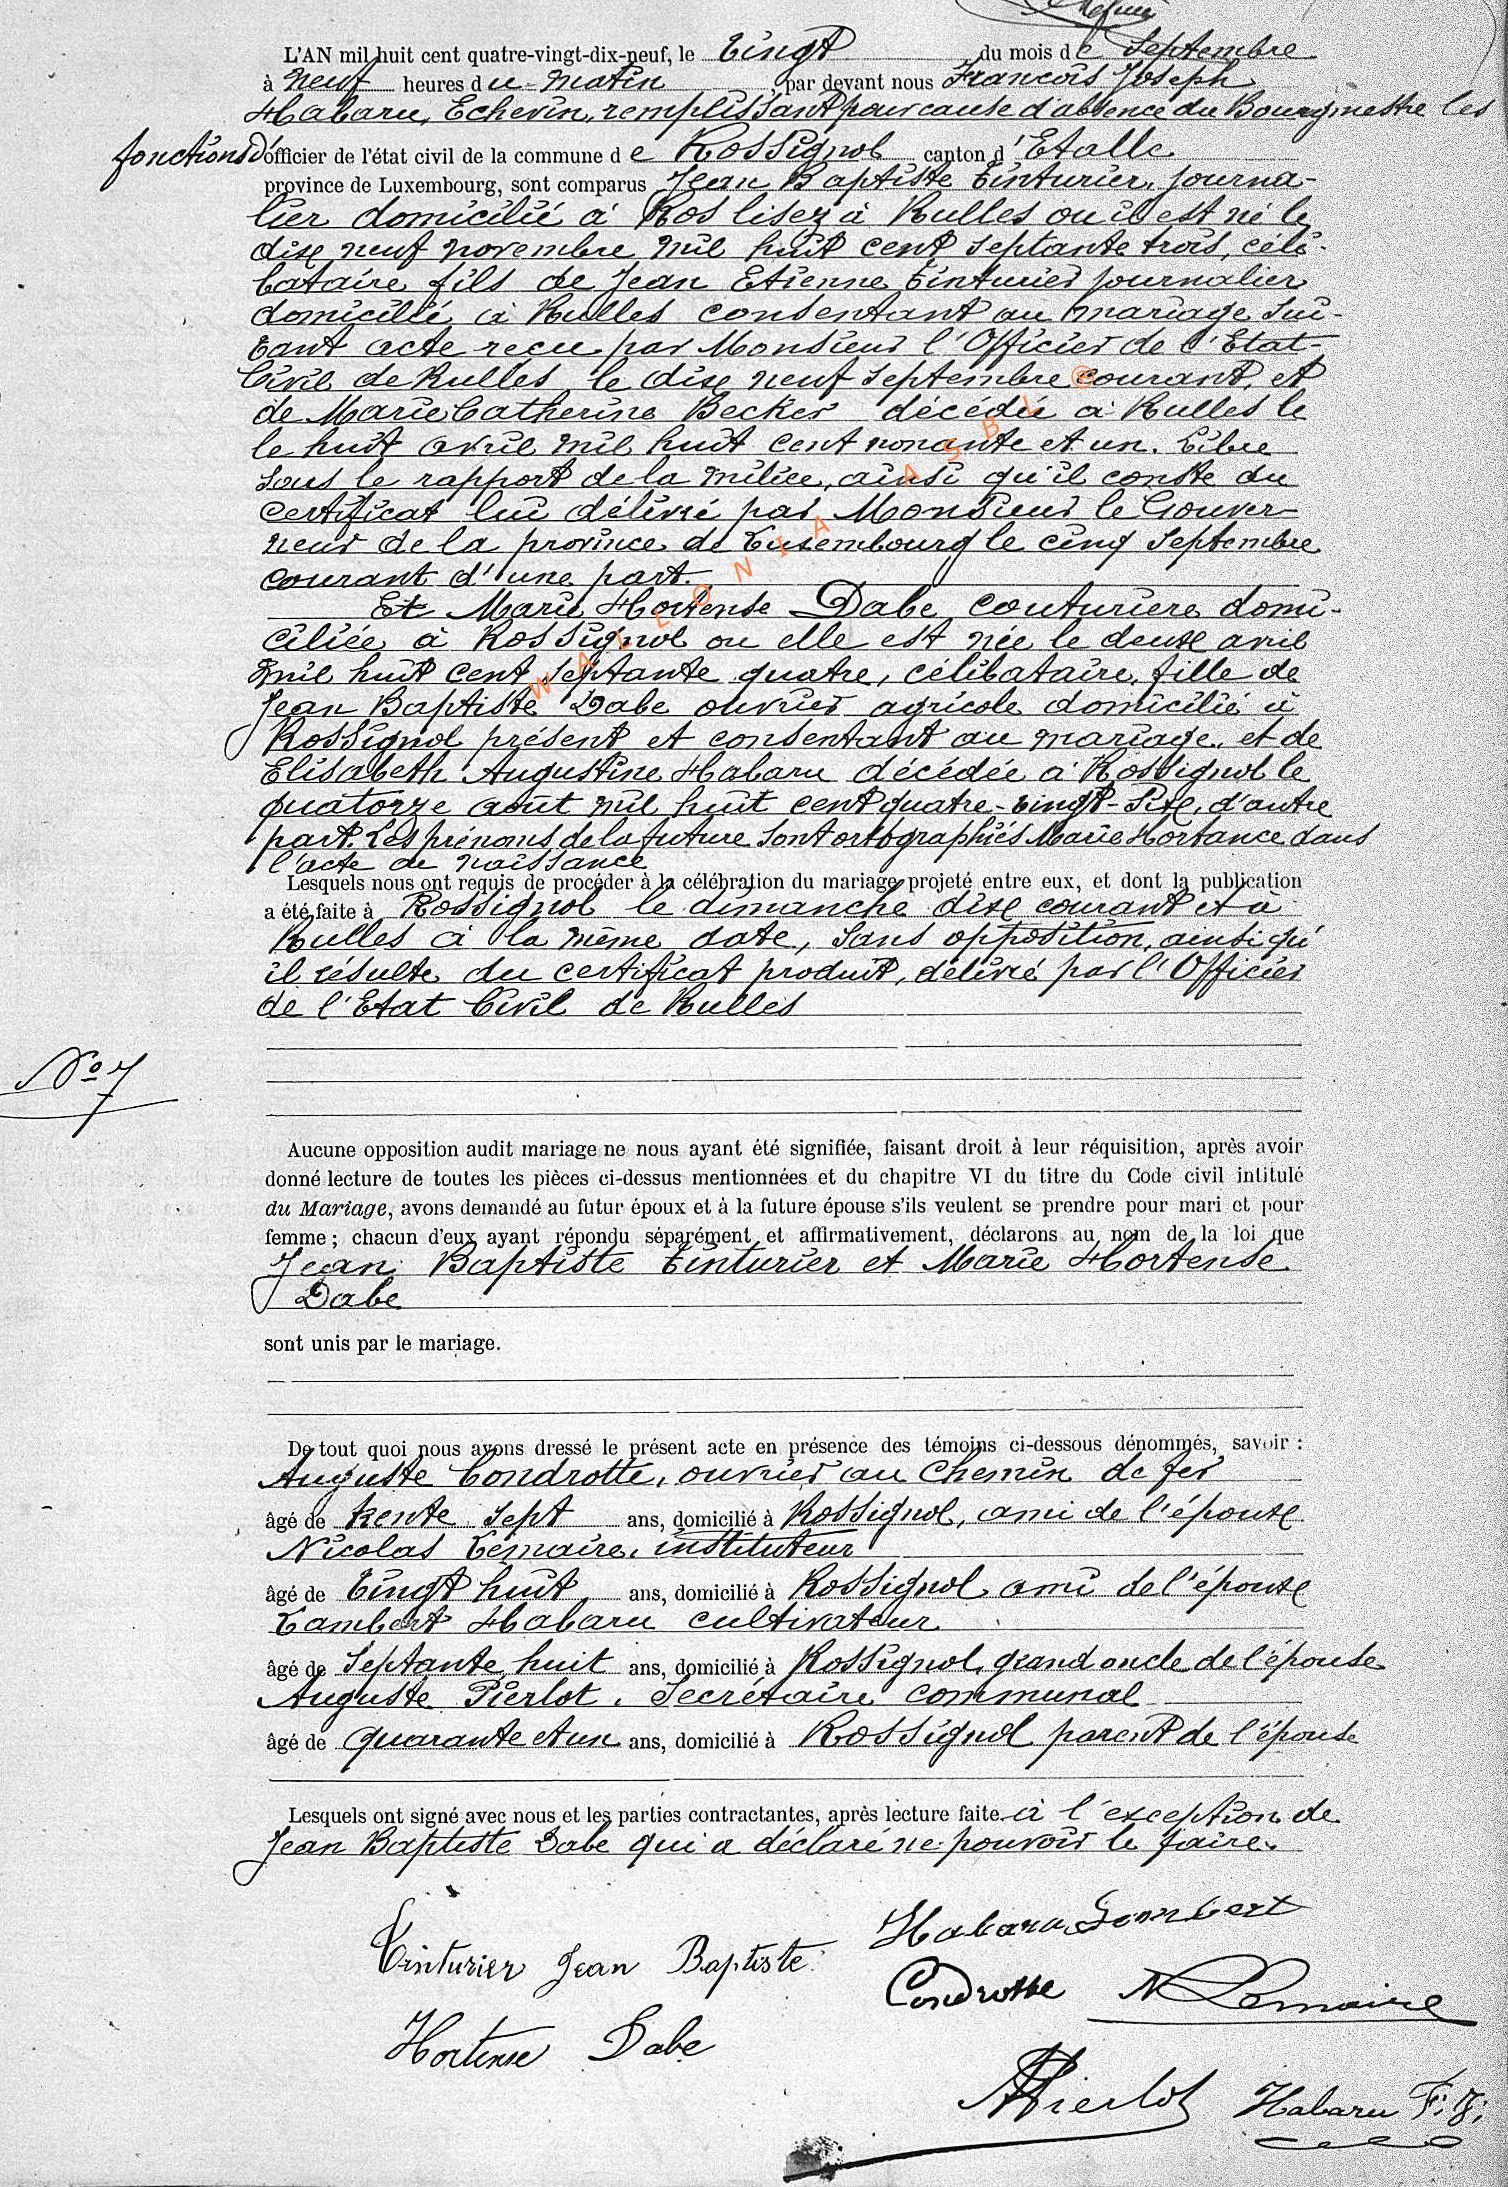 L'AN mil huit cent quatre-vingt-dix-neuf, le Vingt du mois de Septembre
à neuf heures du matin, par devant nous Francois Joseph
Habaru, Echevin, remplissant pour cause d'absence du Bourgmestre les
fonctions d'officier de l'état civil de la commune de Rossignol canton d'Etalle
province de Luxembourg, sont comparus Jean Baptiste Tinturier, journa-
lier domicilié à Ros lisez à Rulles ou il est né le
dix neuf novembre mil huit cent septante trois, céli-
bataire fils de Jean Etienne Tinturier journalier
domicilié à Rulles consentant au mariage sui-
vant acte reçu par Monsieur l'Officier de l'Etat-
Civil de Rulles le dix neuf septembre courant, et
de Marie Catherine Becker décédée à Rulles le
le huit avril mil huit cent nonante et un. Libre
sous le rapport de la milice, ainsi qu'il conste du
certificat lui délivré par Monsieur le Gouver-
neur de la province de Luxembourg le cinq Septembre
courant d'une part.
Et Marie Hortense Dabe couturière domi-
ciliée à Rossignol ou elle est née le deux avril
mil huit cent septante quatre, célibataire, fille de
Jean Baptiste Dabe ouvrier agricole domicilié à
Rossignol présent et consentant au mariage et de
Elisabeth Augustine Habaru décédée à Rossignol le
quatorze août mil huit cent quatre-vingt-six, d'autre
part. Les prénoms de la future sont ortographiés Marie Hortance dans
l'acte de naissance
Lesquels nous ont requis de procéder à la célébration du mariage projeté entre eux, et dont la publication
a été faite à Rossignol le dimanche dix courant et à
Rulles à la même date, sans opposition, ainsi qu'
il résulte du certificat produit, délivré par l'Officier
de l'Etat Civil de Rulles
No 7
Aucune opposition audit mariage ne nous ayant été signifiée, faisant droit à leur réquisition, après avoir
donné lecture de toutes les pièces ci-dessus mentionnées et du chapitre VI du titre du Code civil intitulé
du Mariage, avons demandé au futur époux et à la future épouse s'ils veulent se prendre pour mari et pour
femme ; chacun d'eux ayant répondu séparément et affirmativement, déclarons au nom de la loi que
Jean Baptiste Tinturier et Marie Hortense
Dabe
sont unis par le mariage.
De tout quoi nous avons dressé le présent acte en présence des témoins ci-dessous dénommés, savoir :
Auguste Condrotte, ouvrier au Chemin de fer
âgé de trente sept ans, domicilié à Rossignol, ami de l'épouse
Nicolas Lemaire, instituteur
âgé de Vingt huit ans, domicilié à Rossignol ami de l'épouse
Lambert Habaru cultivateur
âgé de Septante huit ans, domicilié à Rossignol, grand oncle de l'épouse
Auguste Pierlot, Secrétaire communal
âgé de quarante et un ans, domicilié à Rossignol parent de l'épouse
Lesquels ont signé avec nous et les parties contractantes, après lecture faite. à l'exception de
Jean Baptiste Dabe qui a déclaré ne pouvoir le faire.
Tinturier Jean Baptiste Habaru Lambert
Condrotte N Lemaire
Hortense Dabe
A Pierlot Habaru F. J.
WALLONIA ASBL ®